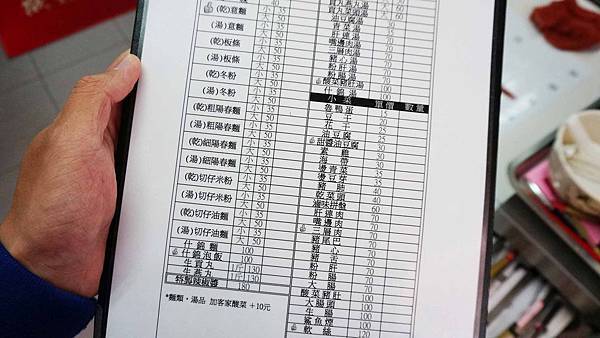 (乾)意麵 小 35
大 50
(湯)意麵 小 35
大 50
(乾)板條 小 35
大 50
(湯)板條 小 35
大 50
(乾)冬粉 小 35
大 50
(湯)冬粉 小 35
大 50
(乾)粗陽春麵 小 35
大 50
(湯)粗陽春麵 小 35
大 50
(乾)細陽春麵 小 35
大 50
(湯)細陽春麵 小 35
大 50
(乾)切仔米粉 小 35
大 50
(湯)切仔米粉 小 35
大 50
(乾)切仔油麵 小 35
大 50
(湯)切仔油麵 小 35
大 50
什錦麵 100
什錦泡飯 100
生貢丸 1斤 130
生燕丸 1斤 130
特製辣椒醬 180
*麵類、湯品 加客家酸菜 +10元
油豆腐湯
青菜湯
肝連湯
嘴邊肉湯
三層肉湯
豬心湯
粉肝湯
粉腸湯
酸菜豬肚湯
什錦湯 100
小菜 單價 數量
魯鴨蛋 15
豆干 20
花干
油豆腐
甜醬油豆腐
素雞
海帶
燙青菜
燙豆芽
豬肺 40
乾菜頭 40
滷味拼盤 60
肝連肉 70
嘴邊肉 70
三層肉 70
豬尾巴 70
豬心 70
豬舌 70
粉肝 70
粉腸
大腸
酸菜豬肚 100
大腸頭 100
生腸 100
鯊魚煙 100
軟絲 120